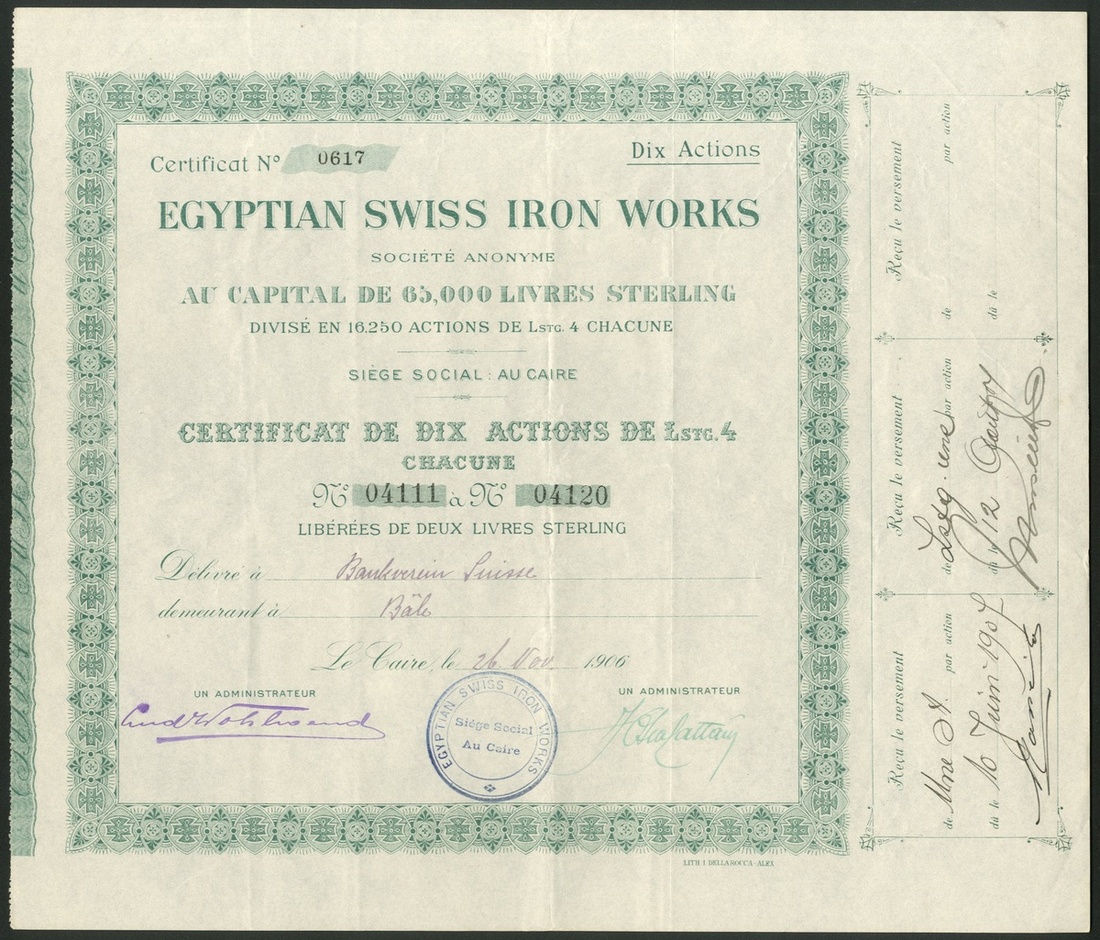 Certificat Nº 0617
Dix Actions
EGYPTIAN SWISS IRON WORKS
SOCIÉTÉ ANONYME
AU CAPITAL DE 65,000 LIVRES STERLING
DIVISÉ EN 16.250 ACTIONS DE LSTG. 4 CHACUNE
SIÈGE SOCIAL : AU CAIRE
CERTIFICAT DE DIX ACTIONS DE LSTG. 4
CHACUNE
Nº 04111 à Nº 04120
LIBÉRÉES DE DEUX LIVRES STERLING
Délivré à Bankverein Suisse
demeurant à Bâle
Le Caire, le 26 Nov. 1906
UN ADMINISTRATEUR
UN ADMINISTRATEUR
EGYPTIAN SWISS IRON WORKS
Siége Social
Au Caire
LITH I. DELLAROCCA-ALEX
Reçu le versement
de Une £ par action
dû le 10 Juin 1907
Reçu le versement
de Lstg. une par action
dû le
Reçu le versement
de par action
dû le